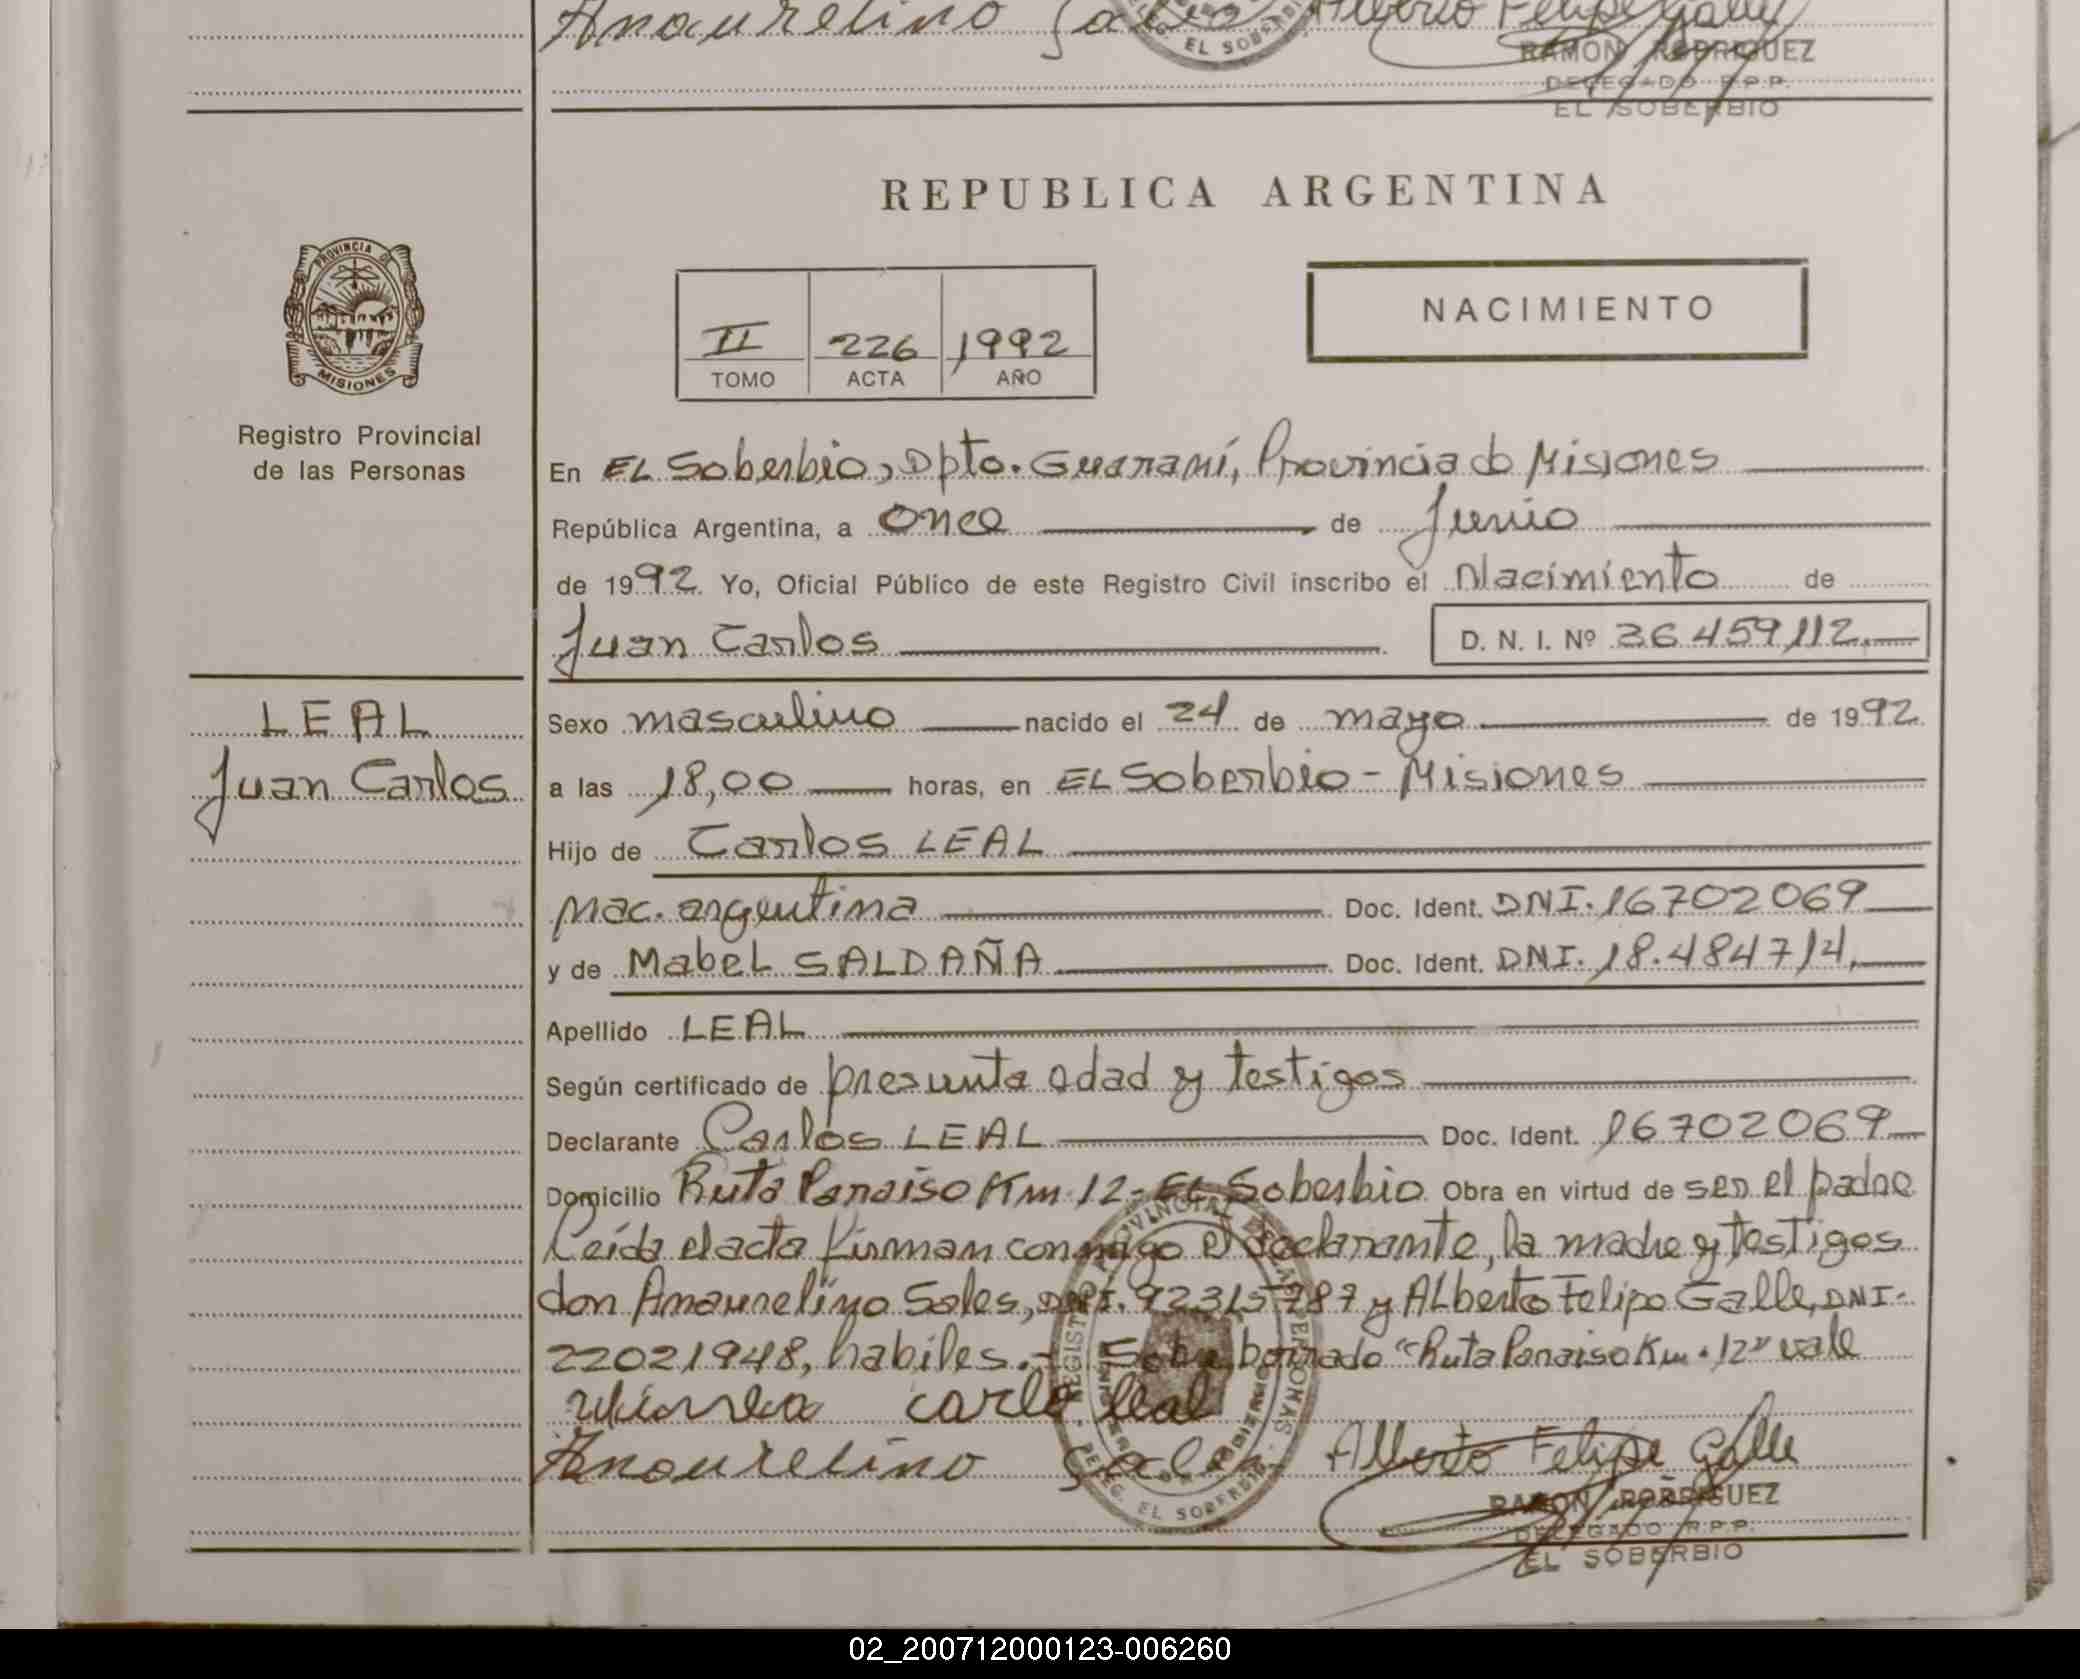 Anaurelino Sales Alberto Felipe Galle
EL SOBERBIO
RAMON RODRIGUEZ
DELEGADO R.P.P.
EL SOBERBIO
REPUBLICA ARGENTINA
PROVINCIA DE
MISIONES
Registro Provincial
de las Personas
II 226 1992
TOMO ACTA AÑO
NACIMIENTO
En EL Soberbio, Dpto. Guaraní, Provincia de Misiones
República Argentina, a once de Junio
de 1992. Yo, Oficial Público de este Registro Civil inscribo el Nacimiento de
Juan Carlos D. N. I. Nº 36.459.112.
LEAL
Juan Carlos
Sexo masculino nacido el 24 de mayo de 1992
a las 18,00 horas, en EL Soberbio - Misiones
Hijo de Carlos LEAL
Nac. argentina Doc. Ident. DNI. 16702069
y de Mabel SALDAÑA Doc. Ident. DNI. 18.484714.
Apellido LEAL
Según certificado de presunta edad y testigos
Declarante Carlos LEAL Doc. Ident. 16702069
Domicilio Ruta Paraiso Km 12 - EL Soberbio Obra en virtud de ser el padre
Leída el acta firman conmigo el declarante, la madre y testigos
don Amaurelino Sales, DNI. 92315787 y ALberto Felipe Galle, DNI.
22021948, habiles.- Sobre borrado "Ruta Paraiso Km. 12" vale
carlo leal
Anaurelino Sales Alberto Felipe Galle
REGISTRO PROVINCIAL DE LAS PERSONAS
DELEG. EL SOBERBIO
RAMON RODRIGUEZ
DELEGADO R.P.P.
EL SOBERBIO
02_200712000123-006260